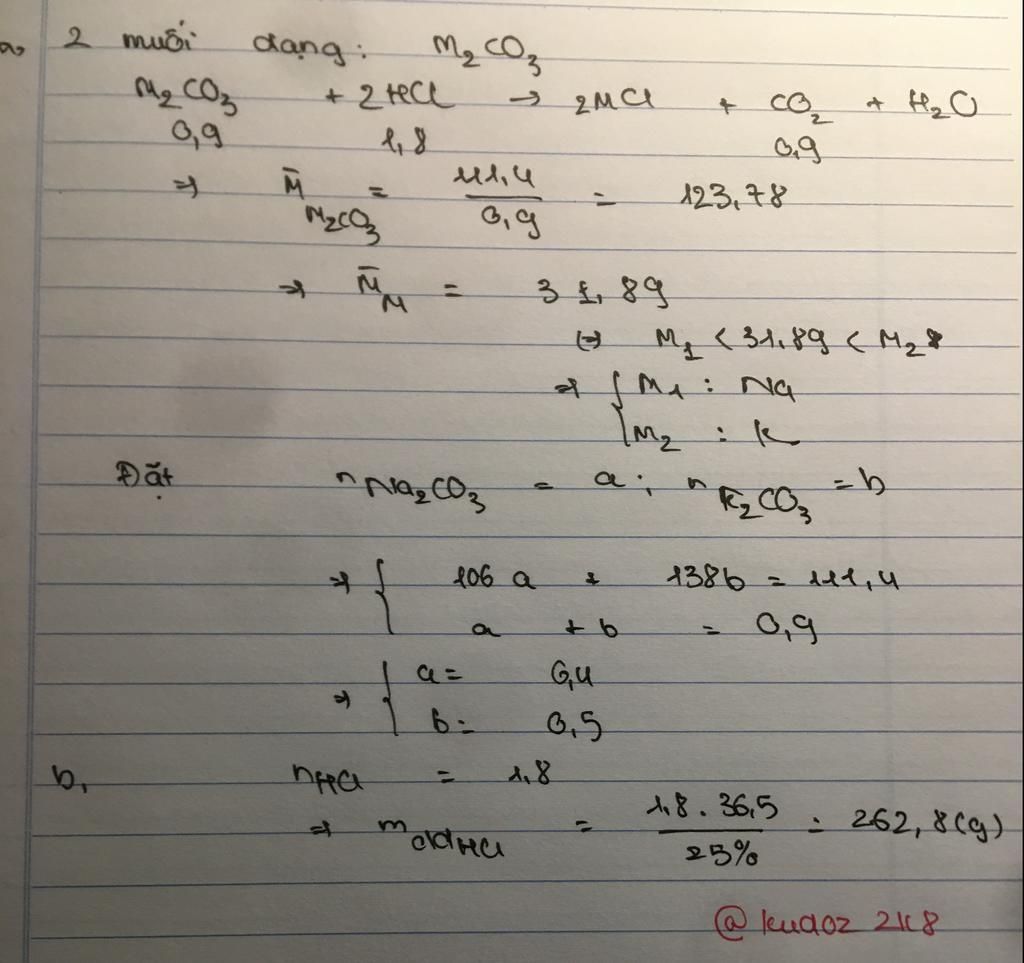 a, 2 muối dạng: M₂CO₃
M₂CO₃ + 2HCl → 2MCl + CO₂ + H₂O
0,9 1,8 0,9
⇒ M̄ M₂CO₃ = 111,4 / 0,9 = 123,78
⇒ M̄ M = 31,89
⇔ M₁ < 31,89 < M₂
⇒ { M₁ : Na
M₂ : K
Đặt n Na₂CO₃ = a ; n K₂CO₃ = b
⇒ { 106a + 138b = 111,4
a + b = 0,9
⇒ { a = 0,4
b = 0,5
b, nHCl = 1,8
⇒ mddHCl = 1,8 . 36,5 / 25% = 262,8 (g)
@kudoz 2k8